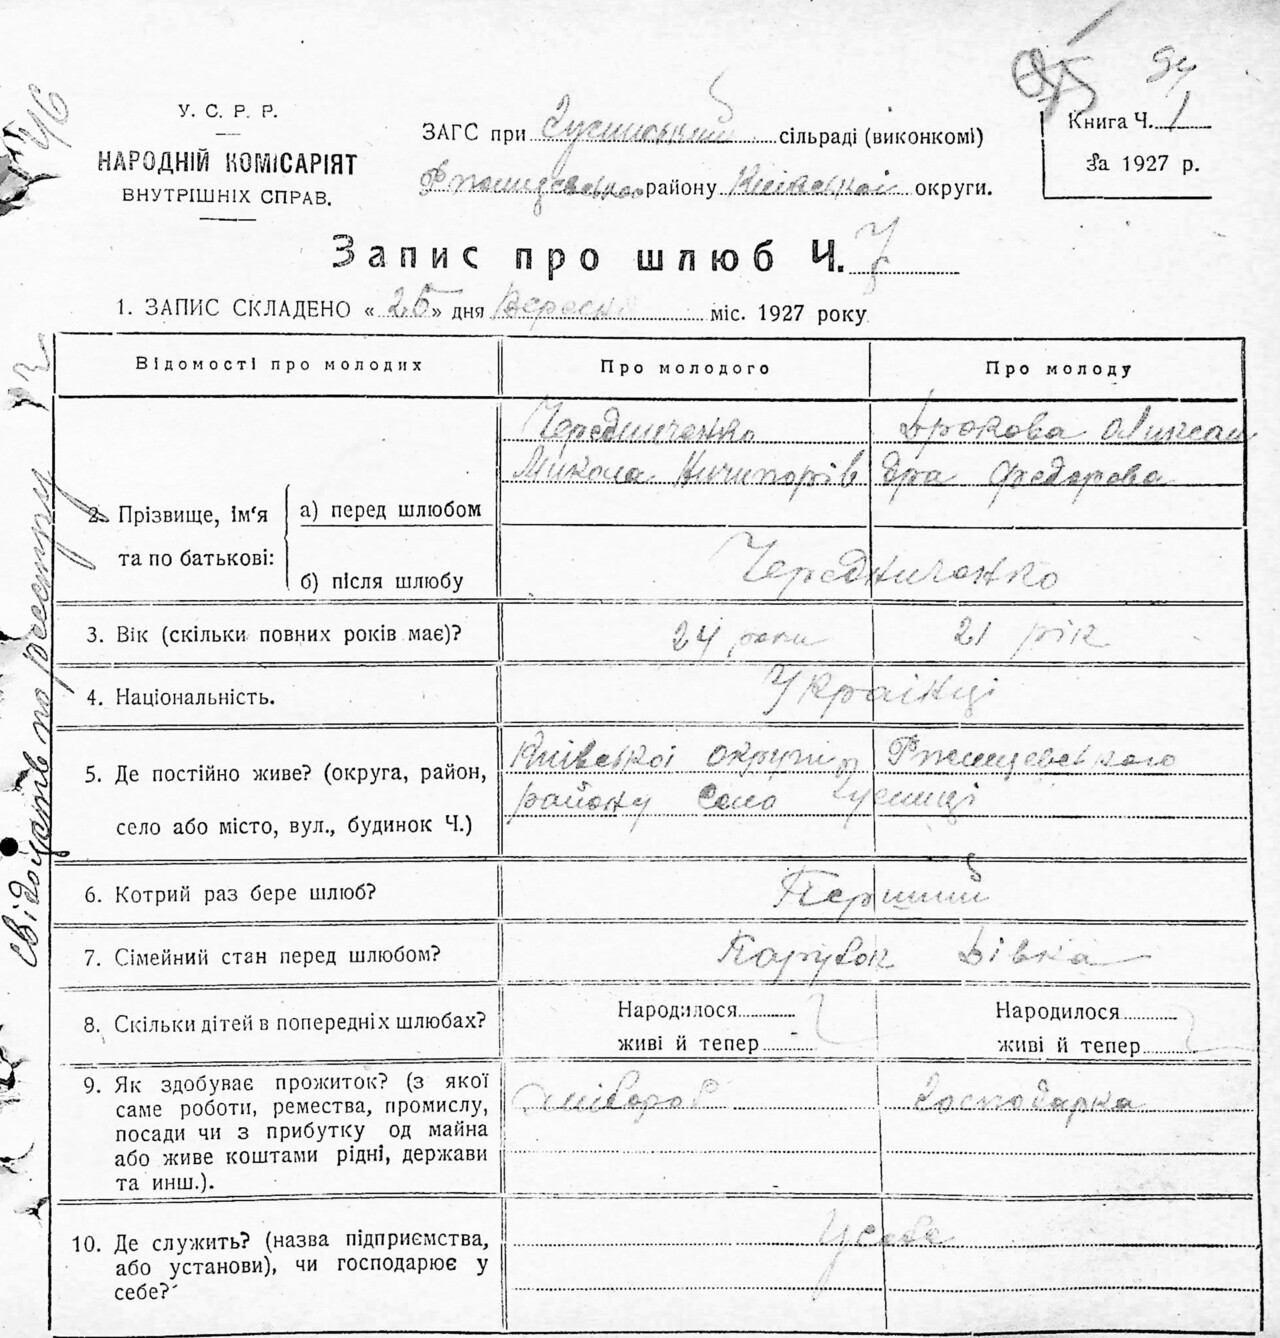 54
У. С. Р. Р.
НАРОДНІЙ КОМІСАРІЯТ
ВНУТРІШНІХ СПРАВ.
ЗАГС при сільраді (виконкомі)
району Київської округи.
Книга Ч. 1
За 1927 р.
Запис про шлюб Ч. 7
1. ЗАПИС СКЛАДЕНО « 25 » дня Вересня міс. 1927 року
Відомості про молодих
Про молодого
Про молоду
2. Прізвище, ім'я та по батькові:
а) перед шлюбом
Чередниченко
Микола Ничипорів
Дрокова Алексан
дра Федорова
б) після шлюбу
Чередниченко
3. Вік (скільки повних років має)?
24 роки
21 рік
4. Національність.
Українці
5. Де постійно живе? (округа, район,
село або місто, вул., будинок Ч.)
Київської округи Ржищевського
району село
6. Котрий раз бере шлюб?
Перший
7. Сімейний стан перед шлюбом?
Парубок
Дівка
8. Скільки дітей в попередніх шлюбах?
Народилося
живі й тепер
Народилося
живі й тепер
9. Як здобуває прожиток? (з якої
саме роботи, ремества, промислу,
посади чи з прибутку од майна
або живе коштами рідні, держави
та инш.).
хлібороб
Господарка
10. Де служить? (назва підприємства,
або установи), чи господарює у
себе?
У себе